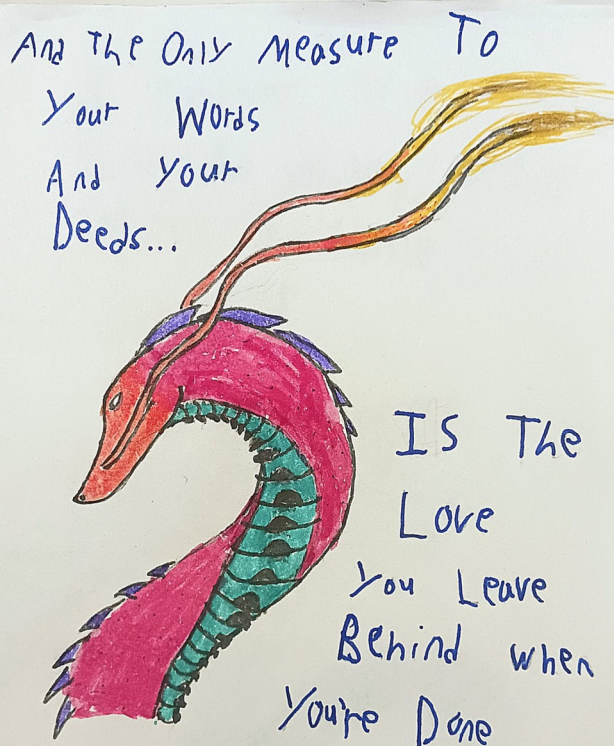 And The Only Measure To
Your Words
And Your
Deeds...
Is The
Love
You Leave
Behind When
You're Done